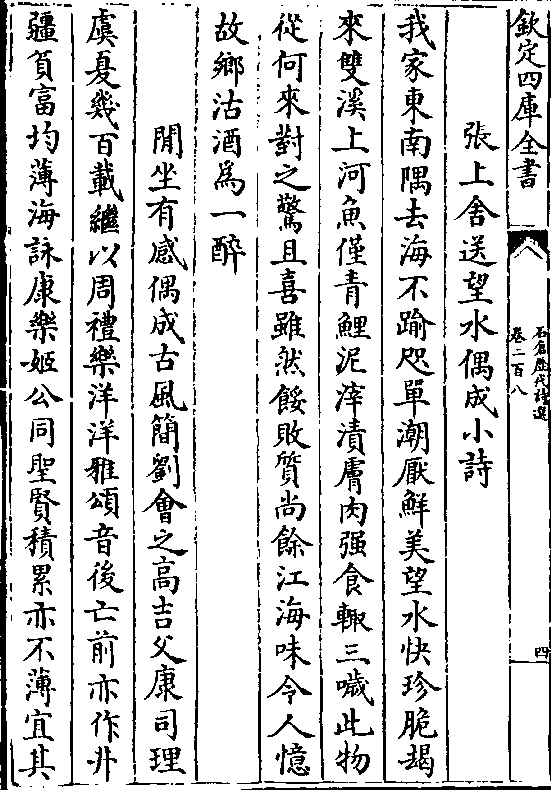 欽定四庫全書
石倉歷代詩選
卷二百八
四
張上舍送望水偶成小詩
我家東南隅去海不踰咫單潮厭鮮美望水快珍脆朅
來雙溪上河魚僅青鯉泥滓漬膚肉强食輙三噦此物
從何來對之驚且喜雖然餒敗質尚餘江海味令人憶
故鄉沽酒為一醉
閒坐有感偶成古風簡劉會之高吉父康司理
虞夏幾百載繼以周禮樂洋洋雅頌音後亡前亦作井
疆貧富均薄海詠康樂姬公同聖賢積累亦不薄宜其